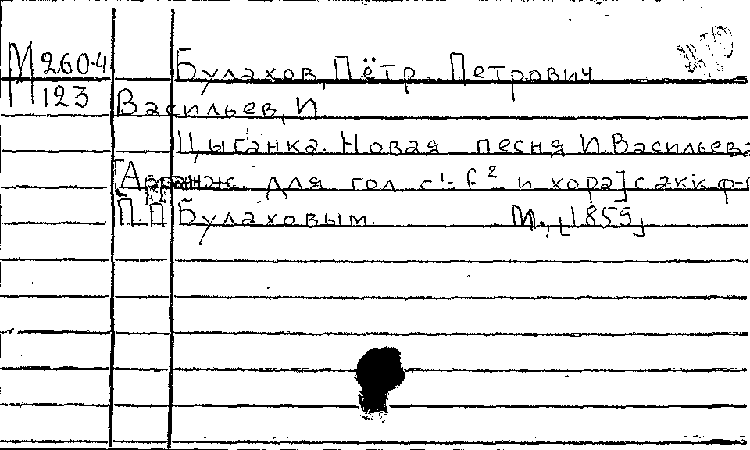 М 260-4 Булахов, Пётр Петрович
123 Васильев, И
Цыганка. Новая песня И. Васильева
[Арранж. для гол c¹-f² и хора] с акк ф-
П. П Булаховым. М., [1859]